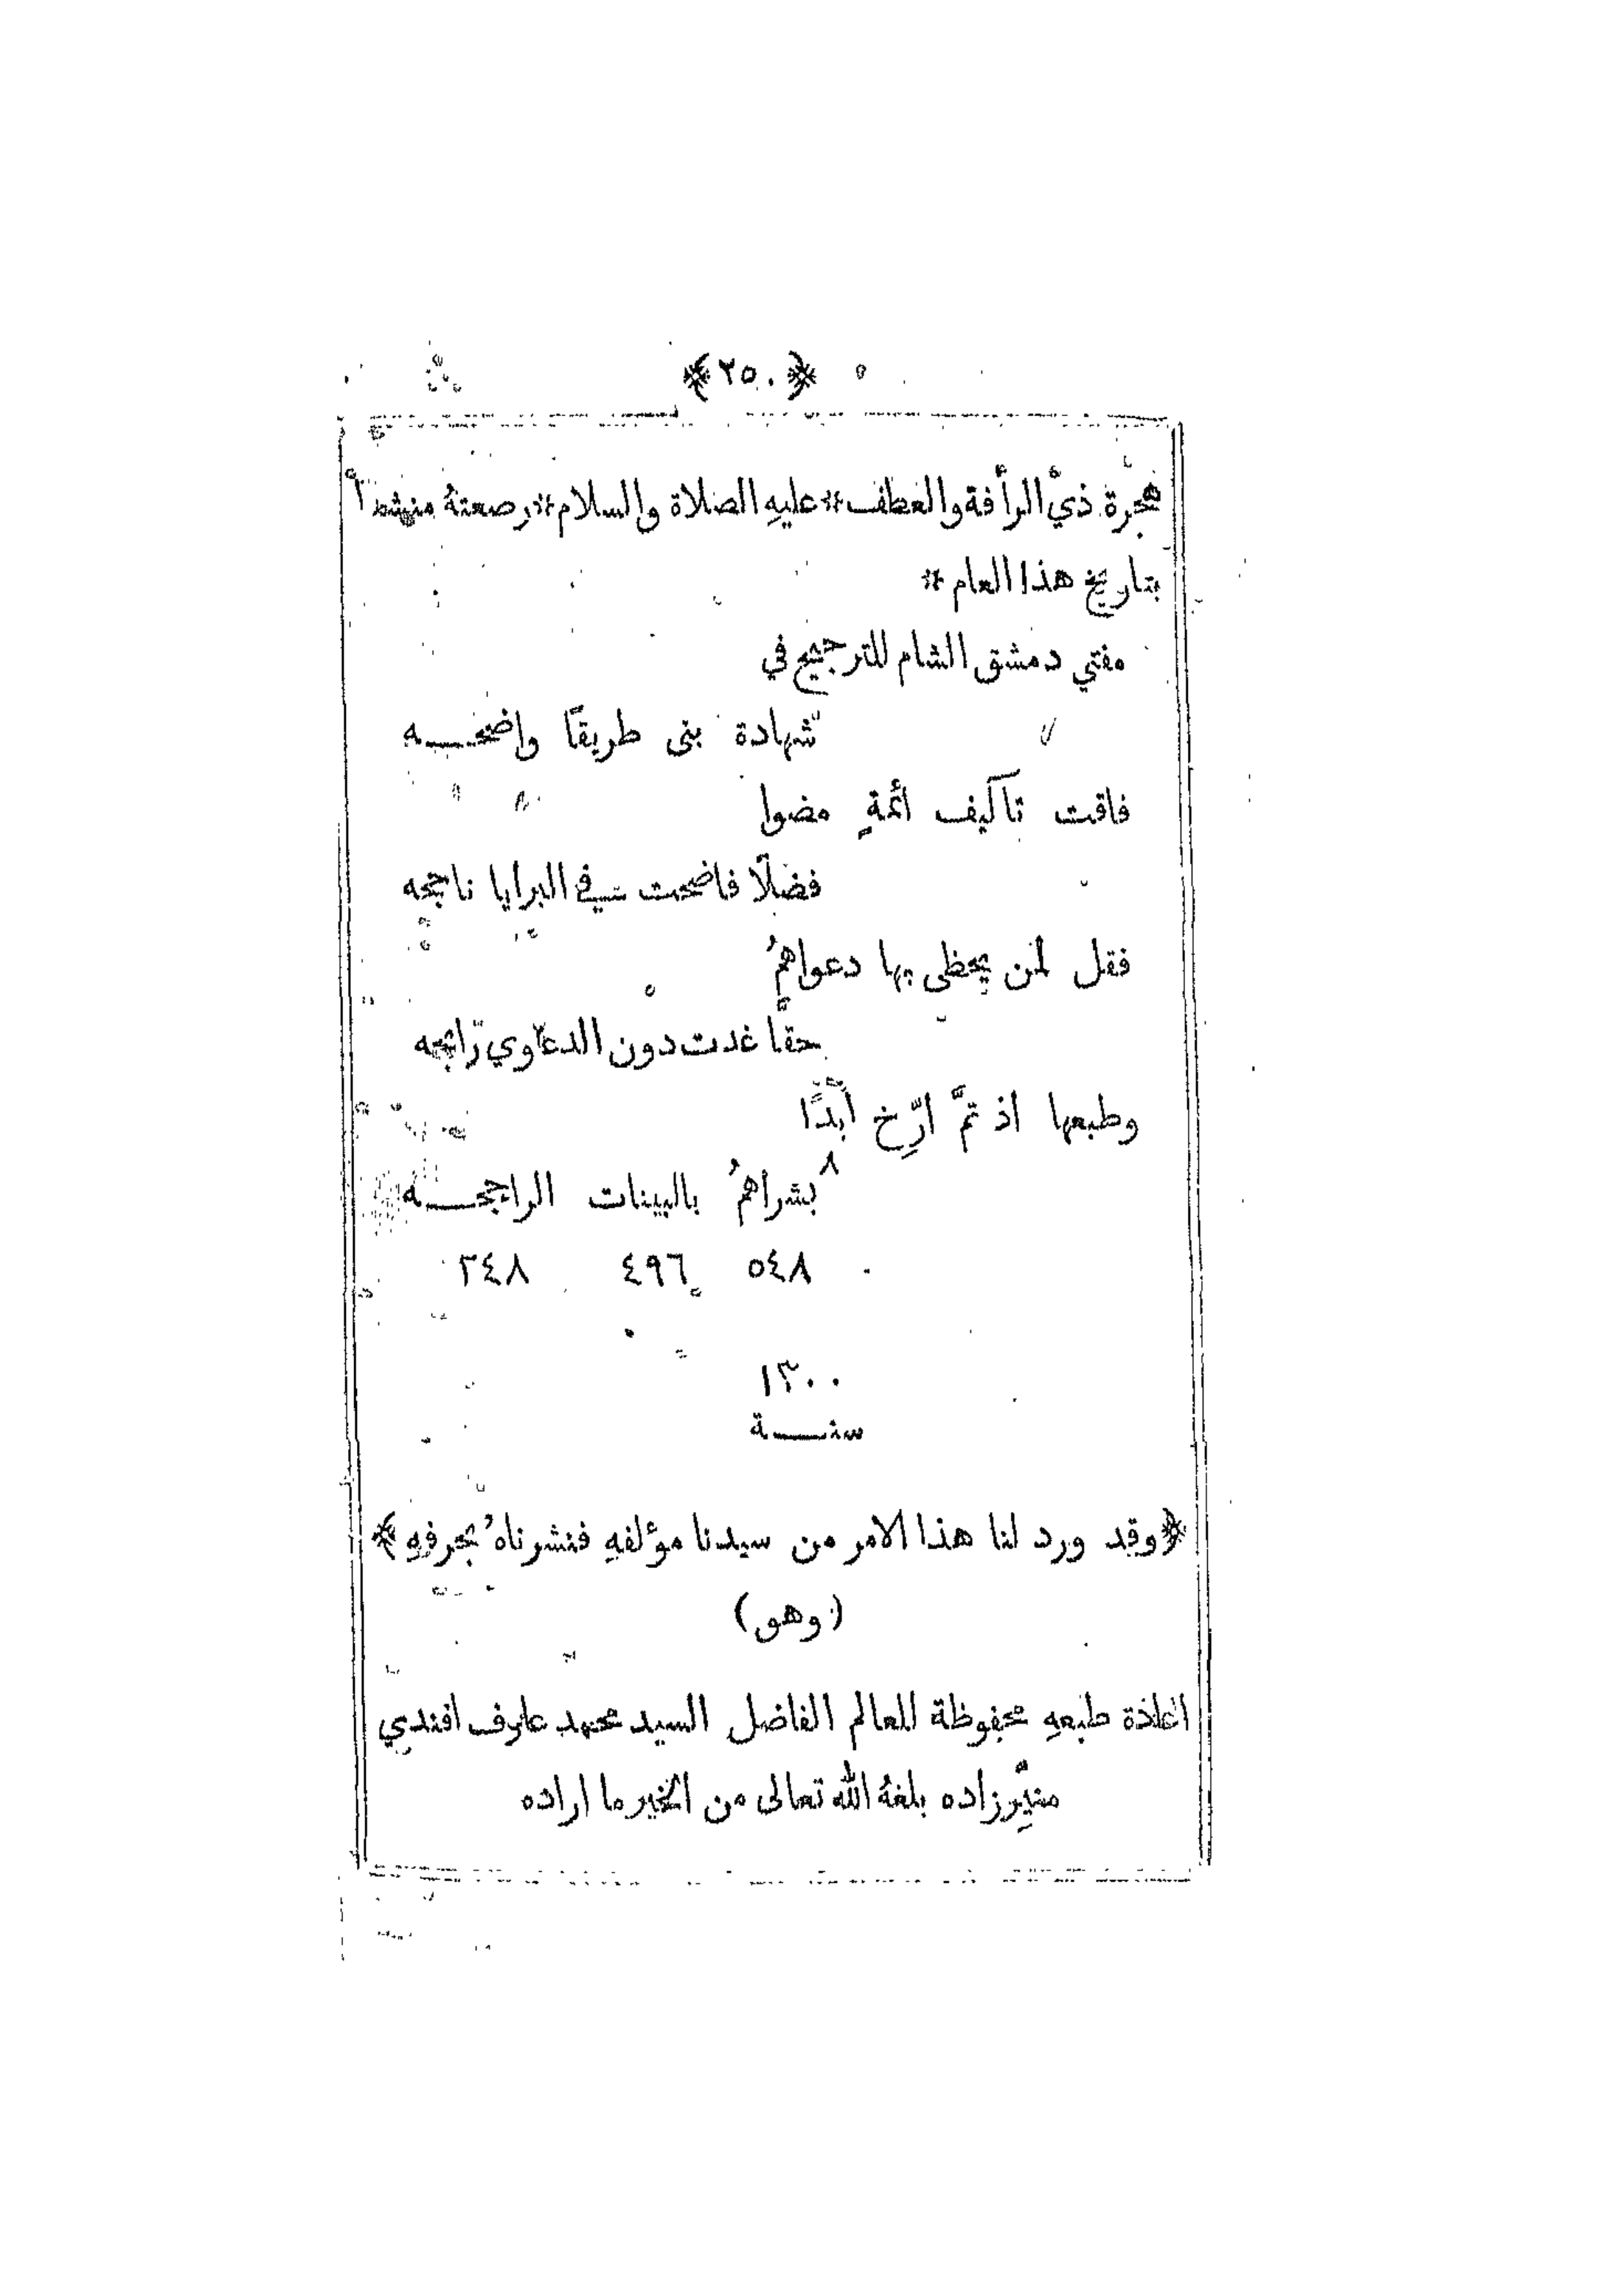 ﴿ ٢٥٠ ﴾
هجرة ذي الرأفة والعطف * عليهِ الصلاة والسلام * رصعتهُ منشداً
بتاريخ هذا العام *
مفتي دمشق الشام للترجيح في
شهادة بنى طريقًا واضحـــه
فاقت تآليف أئمةٍ مضوا
فضلًا فاضحت في البرايا ناجحه
فقل لمن يحظى بها دعواهمُ
حقًّا غدت دون الدعاوي رابحه
وطبعها اذ تمَّ ارِّخ أبدًا
٨
بشراهمُ بالبينات الراجحـــه
٥٤٨ ٤٩٦ ٢٤٨
١٣٠٠
سنـــة
﴿ وقد ورد لنا هذا الامر من سيدنا مؤلفهِ فنشرناهُ بحرفهِ ﴾
(وهو)
اعادة طبعهِ محفوظة للعالم الفاضل السيد محمد عارف افندي
منيِّر زاده بلغهُ الله تعالى من الخير ما اراده